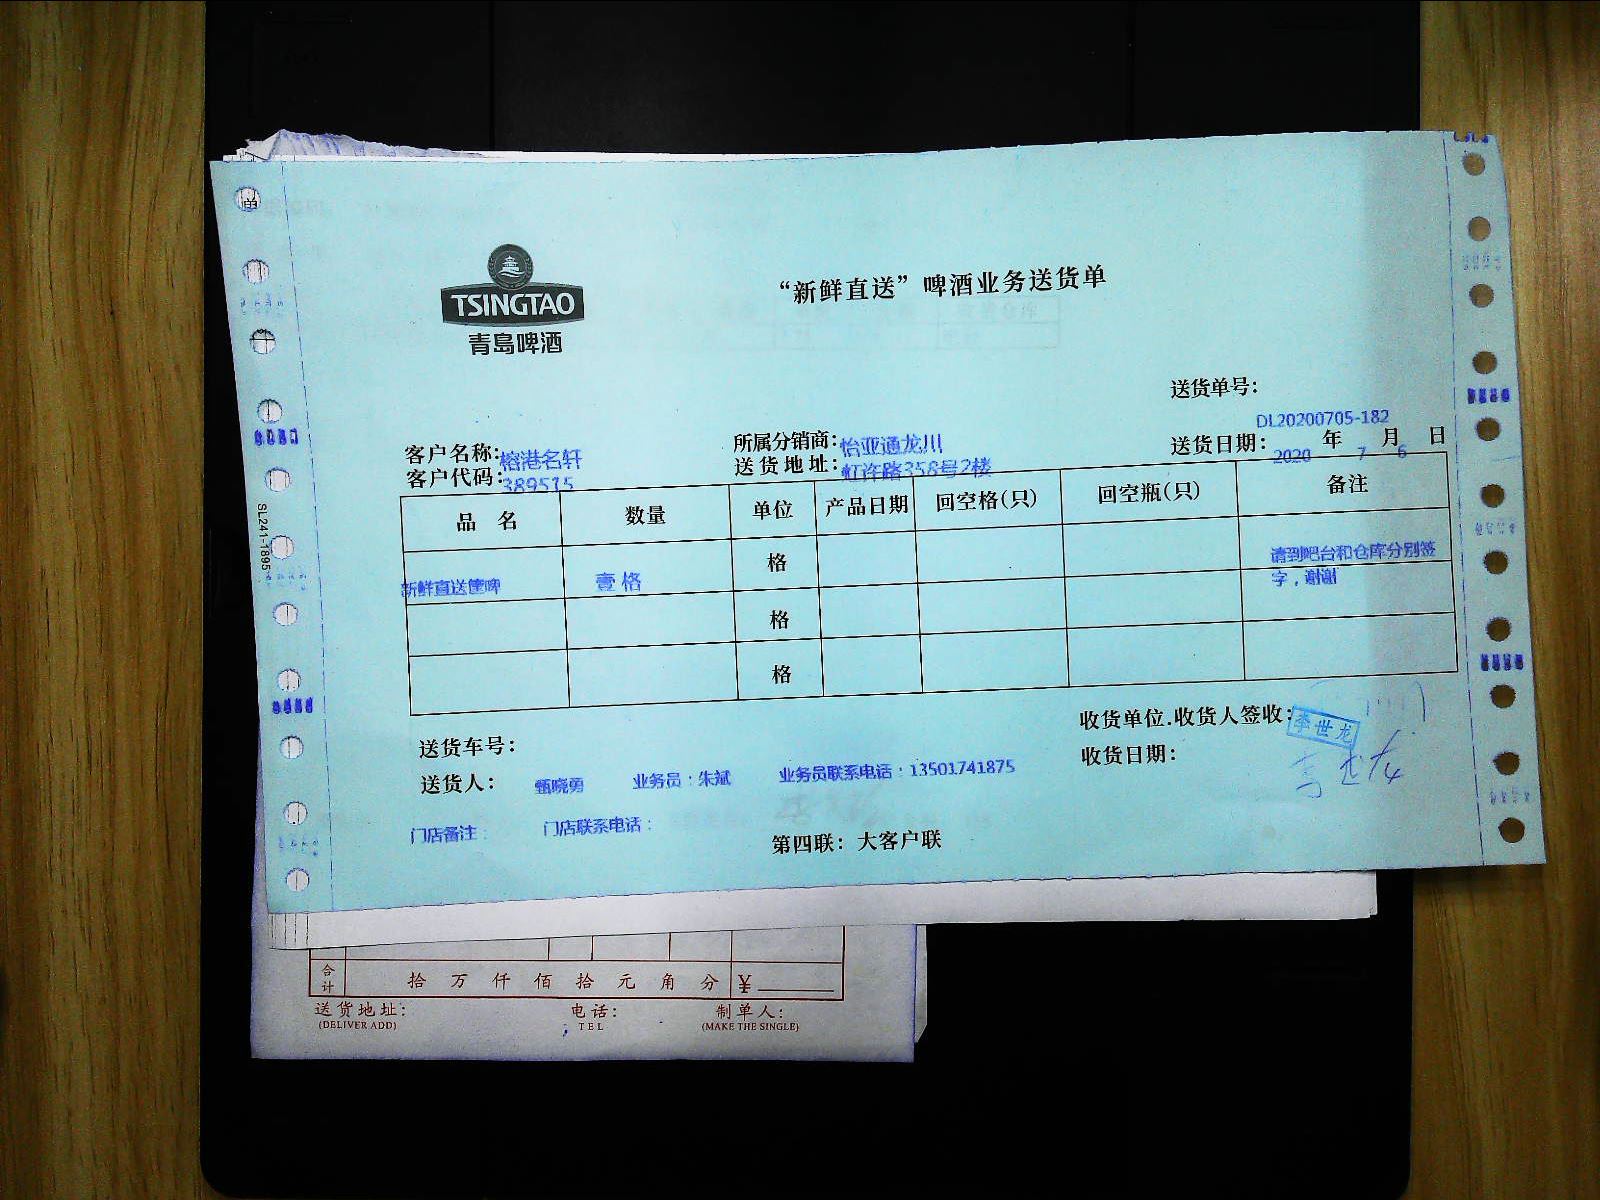 TSINGTAO
青岛啤酒
“新鲜直送”啤酒业务送货单
送货单号：
DL20200705-182
客户名称：榕港名轩 所属分销商：怡亚通龙川 送货日期： 2020 年 7 月 6 日
客户代码：389515 送货地址：虹许路358号2楼
品 名 数量 单位 产品日期 回空格（只） 回空瓶（只） 备注
新鲜直送筐啤 壹 格 格 请到吧台和仓库分别签
字，谢谢
格
格
送货车号： 收货单位.收货人签收：李世龙
送货人： 甄晓勇 业务员：朱斌 业务员联系电话：13501741875 收货日期：
李世龙
门店备注： 门店联系电话：
第四联：大客户联
SL241-1895
合计 拾 万 仟 佰 拾 元 角 分 ¥
送货地址： 电话： 制单人：
(DELIVER ADD) TEL (MAKE THE SINGLE)